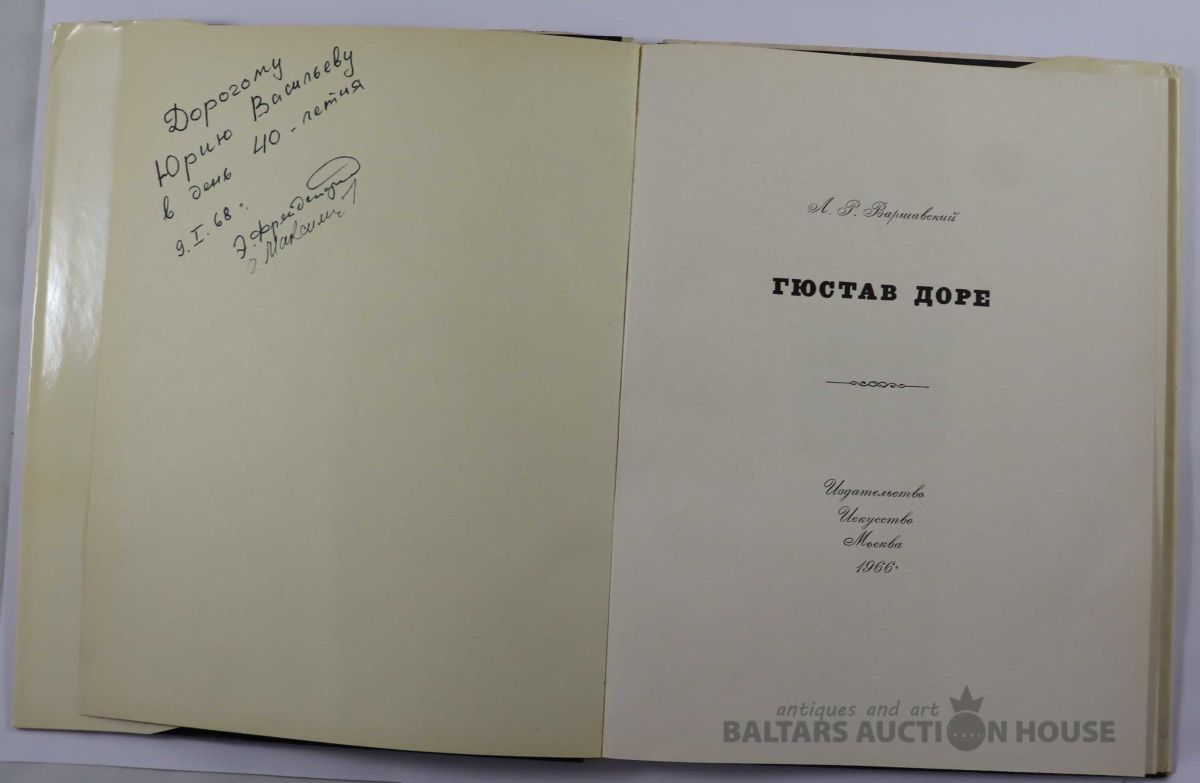 Дорогому
Юрию Васильеву
в день 40-летия
9.I.68г.
Э.
Л. Р. Варшавский
ГЮСТАВ ДОРЕ
Издательство
Искусство
Москва
1966.
antiques and art
BALTARS AUCTION HOUSE